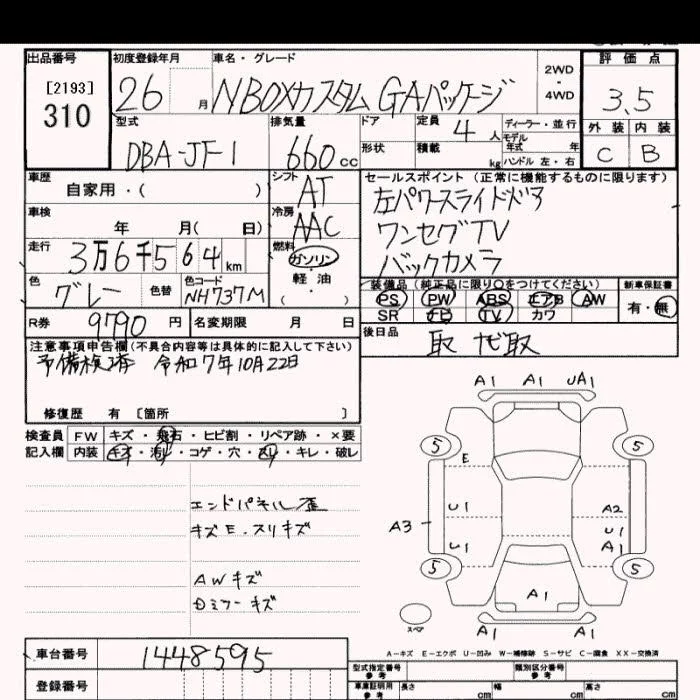 出品番号
[2193]
310
初度登録年月
26 月
車名・グレード
NBOXカスタム GAパッケージ
2WD
・
4WD
評価点
3.5
外装 内装
C B
型式
DBA-JF1
排気量
660 cc
ドア
形状
定員
4 人
積載
kg
ディーラー・並行
モデル
年式 年
ハンドル 左・右
車歴
自家用・( )
シフト
AT
車検
年 月( 日)
冷房
AAC
走行
3万6千564 km
燃料
ガソリン
軽油
( ・ )
色
グレー
色替
色コード
NH737M
セールスポイント(正常に機能するものに限ります)
左パワースライドドア
ワンセグTV
バックカメラ
装備品(純正品に限り○をつけてください)
PS PW ABS エアB AW
SR ナビ TV カワ
新車保証書
有・無
R券
9790 円
名変期限 月 日
後日品
取 ナビ取
注意事項申告欄(不具合内容等は具体的に記入して下さい)
予備検済 令和7年10月22日
修復歴 有 [箇所 ]
検査員
記入欄
FW キズ・飛石・ヒビ割・リペア跡・×要
内装 キズ・汚れ・コゲ・穴・スレ・キレ・破レ
エンドパネル歪
キズE.スリキズ
AWキズ
Dミラーキズ
A1 A1 UA1
5 5
E
U1 A2
A3 U1
U1 A1
5 5
A1
スペア
A1 A1
A-キズ E-エクボ U-凹み W-補修跡 S-サビ C-腐食 XX-交換済
車台番号
1448595
登録番号
型式指定番号
参考
類別区分番号
参考
車庫証明用
参考
長さ cm 幅 cm 高さ cm